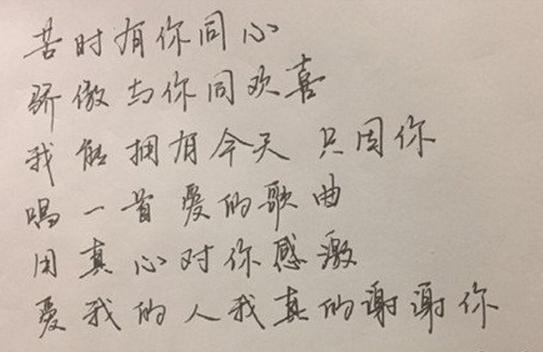 苦时有你同心
骄傲与你同欢喜
我能拥有今天 只因你
唱一首爱的歌曲
用真心对你感激
爱我的人我真的谢谢你